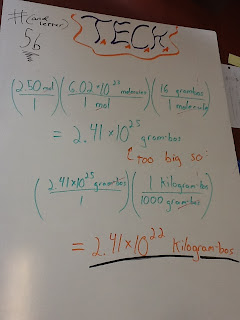 #(and letter)
5b
TECH
(2.50 mol / 1) (6.02×10²³ molecules / 1 mol) (16 grambos / 1 molecule)
= 2.41 × 10²⁵ grambos
too big so
(2.41×10²⁵ grambos / 1) (1 kilogram-bo / 1000 grambos)
= 2.41×10²² kilogram-bos